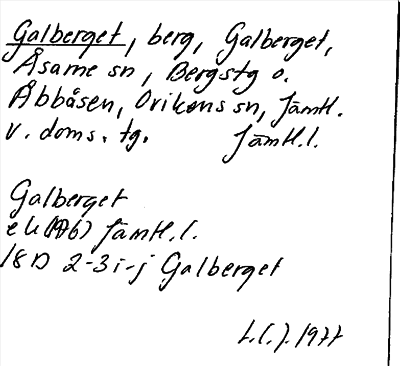 Galberget, berg, Galberget,
Åsarne sn, Bergs tg o.
Åbbåsen, Ovikens sn, Jämtl.
v. doms. tg. Jämtl.l.
Galberget
ek (1976) Jämtl.l.
18D 2-3 i-j Galberget
1977